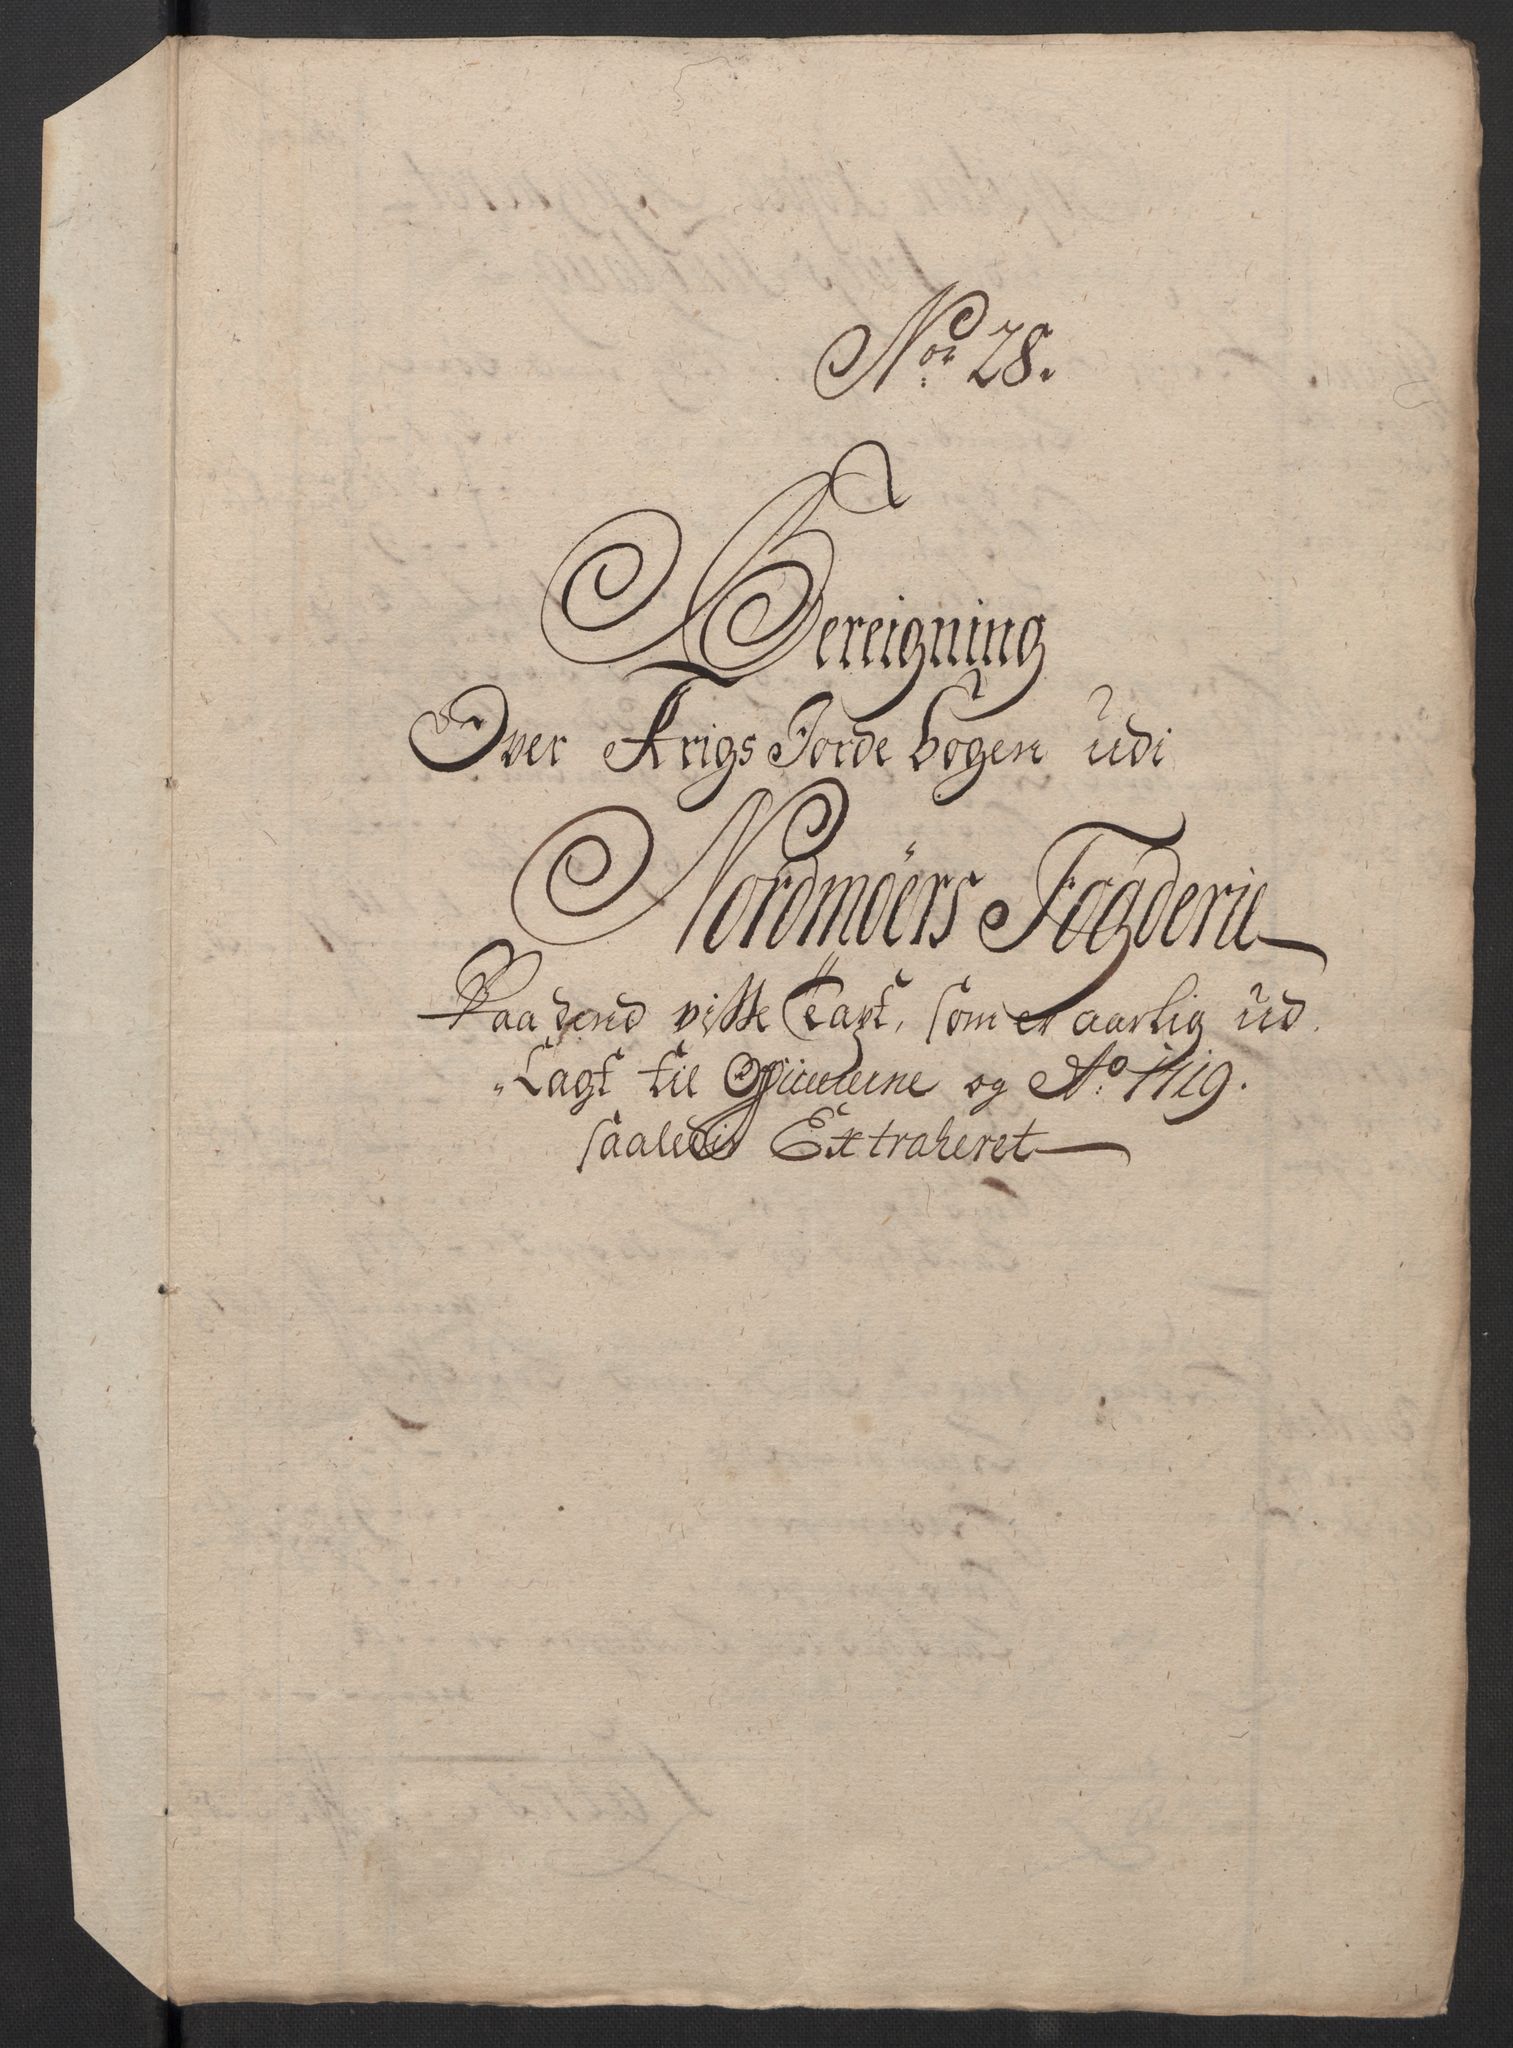 Nor 28.
Bereigning
Over Krigs Jordebogen udi
Nordmöers Fogderie
Paa dend visse Taxt, som er aarlig ud
Lagt til Officiererne og Ao: 1719.
saaledis Extraheret